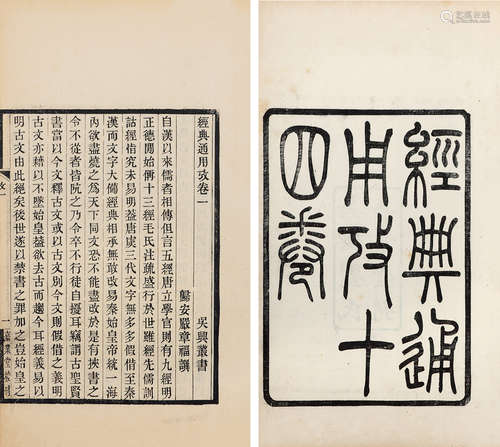 經典通
用攷十
四卷
經典通用攷卷一
吳興叢書
歸安嚴章福譔
自漢以來儒者相傳但言五經唐立學官則有九經明
正德開始俻十三經毛氏注疏盛行於世雖經先儒訓
詁經指究未易明葢唐虞三代文字無多多假借至秦
漢而文字大備經典相承無敢改易秦始皇帝統一海
內欲盡燒之爲天下同文恐不能盡改於是有挾書之
令不從者皆阬之乃令卒不行徒自擾耳竊謂古聖賢
書當以今文釋古文或以古文別今文則假借之義明
古文亦藉以不墜始皇葢欲去古而趨今耳經義易以
明古文由此絕矣後世遂以禁書之罪加之豈始皇之
攷一
一
嘉業堂校刊